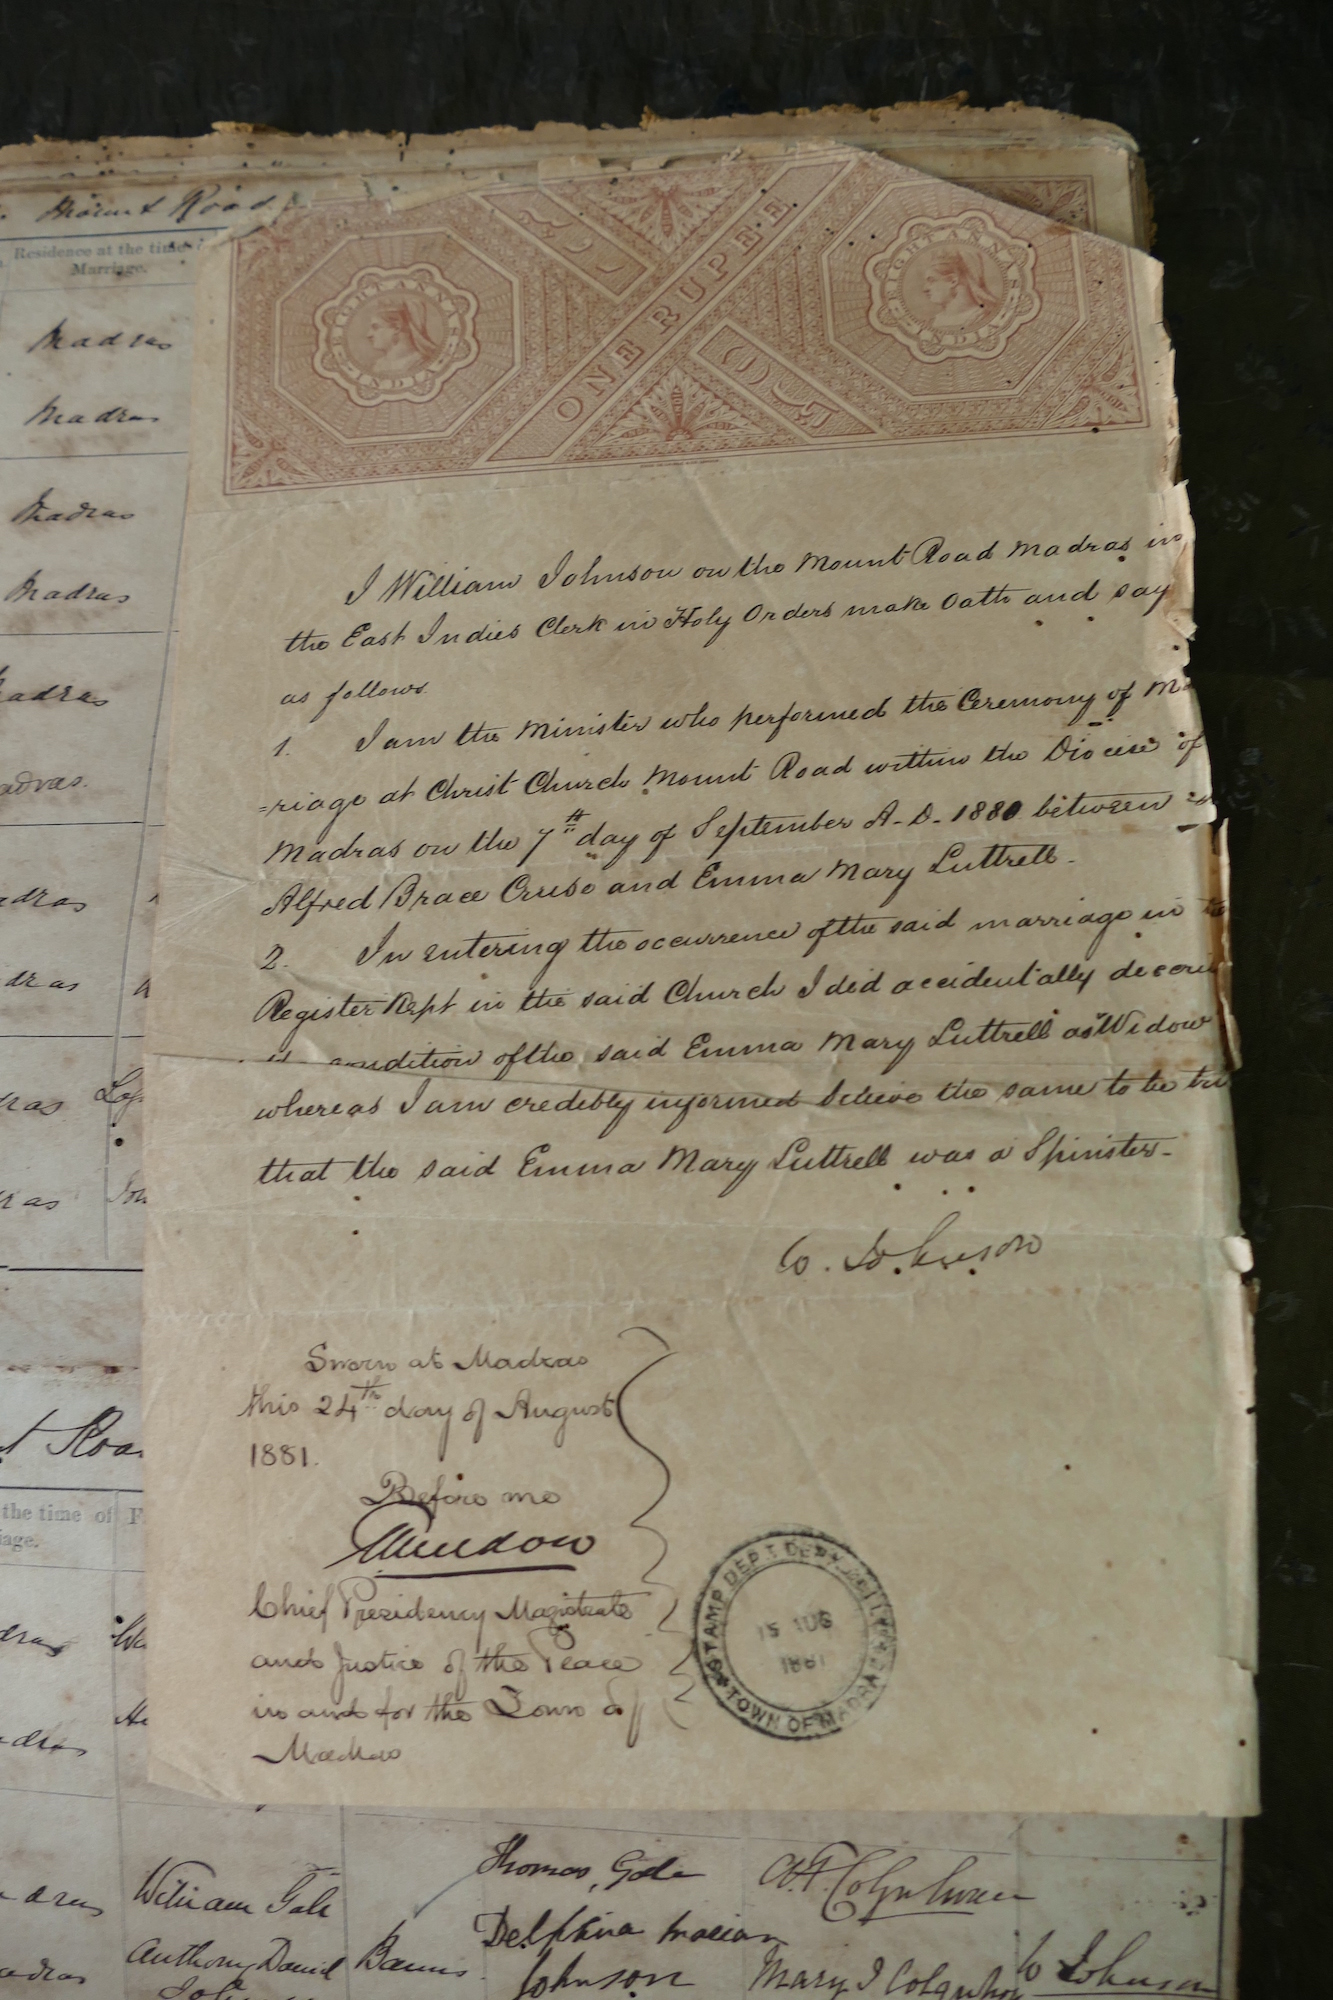 Mount Road
Residence at the time
Marriage.
Madras
Madras
Madras
Madras
adras
adras.
adras
dras
ras
ras
EIGHT ANNAS
INDIA
ONE RUPEE
EIGHT ANNAS
INDIA
I William Johnson on the Mount Road Madras in
the East Indies Clerk in Holy Orders make Oath and say
as follows.
1. I am the Minister who performed the Ceremony of Ma
=riage at Christ Church Mount Road within the Diocese of
Madras on the 7th day of September A.D. 1880 between
Alfred Brace Cruso and Emma Mary Luttrell.
2. In entering the occurrence of the said marriage in the
Register Kept in the said Church I did accidentally
condition of the said Emma Mary Luttrell as "Widow
whereas I am credibly informed believe the same to be tru
that the said Emma Mary Luttrell was a Spinster.
W. Johnson
Sworn at Madras
this 24th day of August
1881.
Before me
Chief Presidency Magistrate
and Justice of the Peace
in and for the Town of
Madras
STAMP DEPT.
15 AUG
1881
TOWN OF MADRAS
t Roa
the time of F
iage.
dras
dras
dras
William Gale
Thomas, Gale
Anthony David
Banns
Delphina
Johnson
Mary I
adras
W Johnson